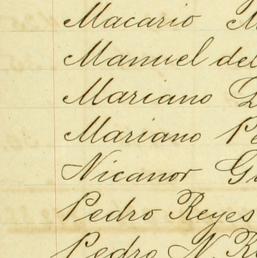 Macario
Manuel del
Marcano
Mariano
Nicanor
Pedro Reyes
Pedro N.